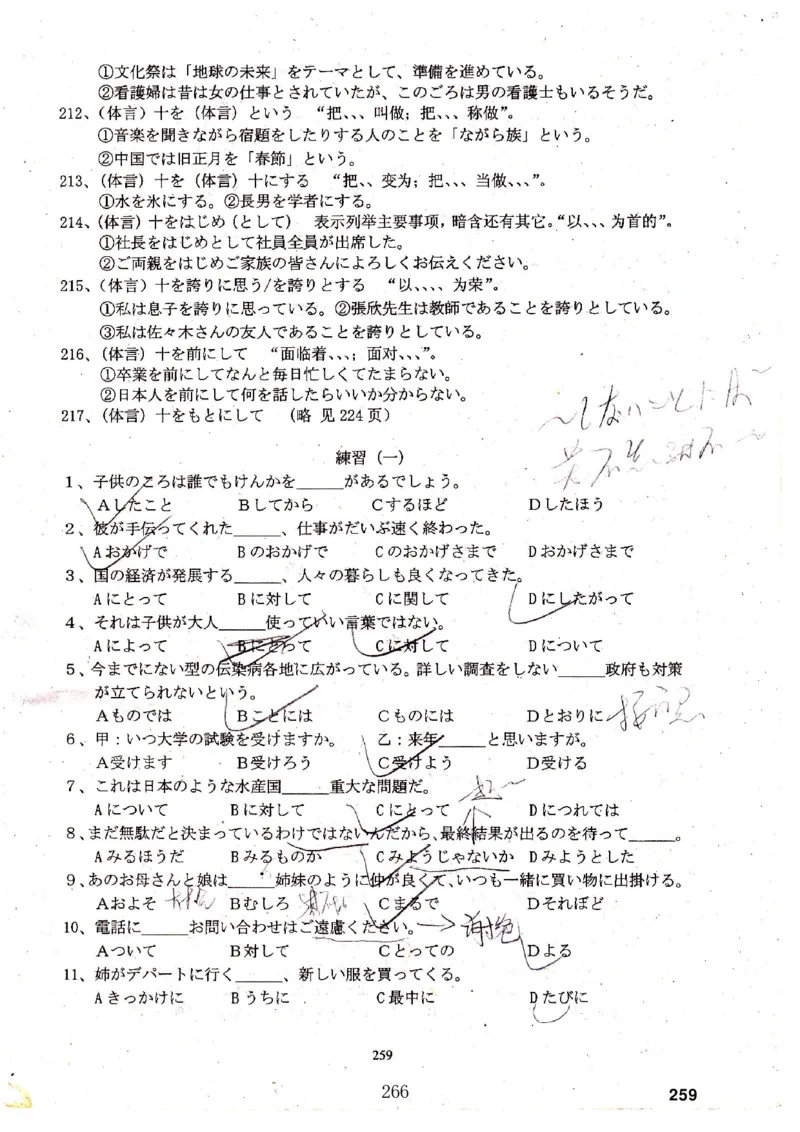 ①文化祭は「地球の未来」をテーマとして、準備を進めている。
②看護婦は昔は女の仕事とされていたが、このごろは男の看護士もいるそうだ。
212、（体言）十を（体言）という　“把、、、叫做；把、、、称做”。
①音楽を聞きながら宿題をしたりする人のことを「ながら族」という。
②中国では旧正月を「春節」という。
213、（体言）十を（体言）十にする　“把、、变为；把、、、当做、、、”。
①水を氷にする。②長男を学者にする。
214、（体言）十をはじめ（として）　表示列举主要事项，暗含还有其它。“以、、、为首的”。
①社長をはじめとして社員全員が出席した。
②ご両親をはじめご家族の皆さんによろしくお伝えください。
215、（体言）十を誇りに思う/を誇りとする　“以、、、、为荣”。
①私は息子を誇りに思っている。②張欣先生は教師であることを誇りとしている。
③私は佐々木さんの友人であることを誇りとしている。
216、（体言）十を前にして　“面临着、、、；面对、、、”。
①卒業を前にしてなんと毎日忙しくてたまらない。
②日本人を前にして何を話したらいいか分からない。
217、（体言）十をもとにして　（略 见 224 页）
～しないことには～
練習（一）
1、子供のころは誰でもけんかを______があるでしょう。
Aしたこと　Bしてから　Cするほど　Dしたほう
2、彼が手伝ってくれた______、仕事がだいぶ速く終わった。
Aおかげで　Bのおかげで　Cのおかげさまで　Dおかげさまで
3、国の経済が発展する______、人々の暮らしも良くなってきた。
Aにとって　Bに対して　Cに関して　Dにしたがって
4、それは子供が大人______使っていい言葉ではない。
Aによって　Bにとって　Cに対して　Dについて
5、今までにない型の伝染病各地に広がっている。詳しい調査をしない______政府も対策
が立てられないという。
Aものでは　Bことには　Cものには　Dとおりに
6、甲：いつ大学の試験を受けますか。　乙：来年______と思いますが。
A受けます　B受けろう　C受けよう　D受ける
7、これは日本のような水産国______重大な問題だ。
Aについて　Bに対して　Cにとって　Dにつれては
8、まだ無駄だと決まっているわけではないんだから、最終結果が出るのを待って______。
Aみるほうだ　Bみるものか　Cみようじゃないか　Dみようとした
9、あのお母さんと娘は______姉妹のように仲が良くて、いつも一緒に買い物に出掛ける。
Aおよそ　Bむしろ　Cまるで　Dそれほど
10、電話に______お問い合わせはご遠慮ください。→谢绝
Aついて　B対して　Cとっての　Dよる
11、姉がデパートに行く______、新しい服を買ってくる。
Aきっかけに　Bうちに　C最中に　Dたびに
259
266
259